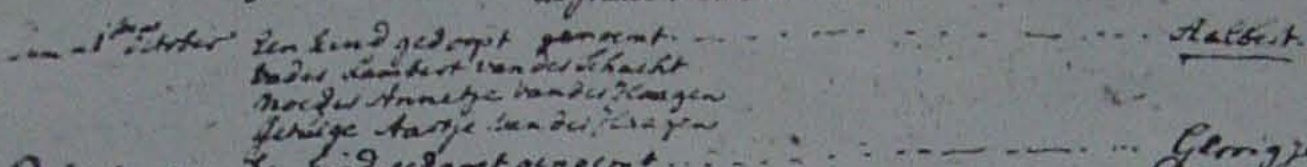 1 october Een kind gedoopt genoemt Aalbert
vader Lambert van der Schacht
moeder Annetje van der Haagen
getuige Aartje van der Haagen
Een kind gedoopt genoemt